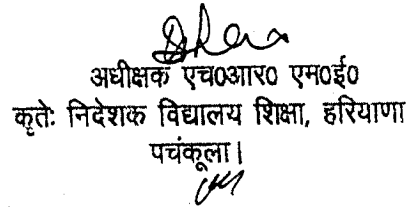 अधीक्षक एच०आर० एम०ई०
कृतेः निदेशक विद्यालय शिक्षा, हरियाणा
पचंकूला।